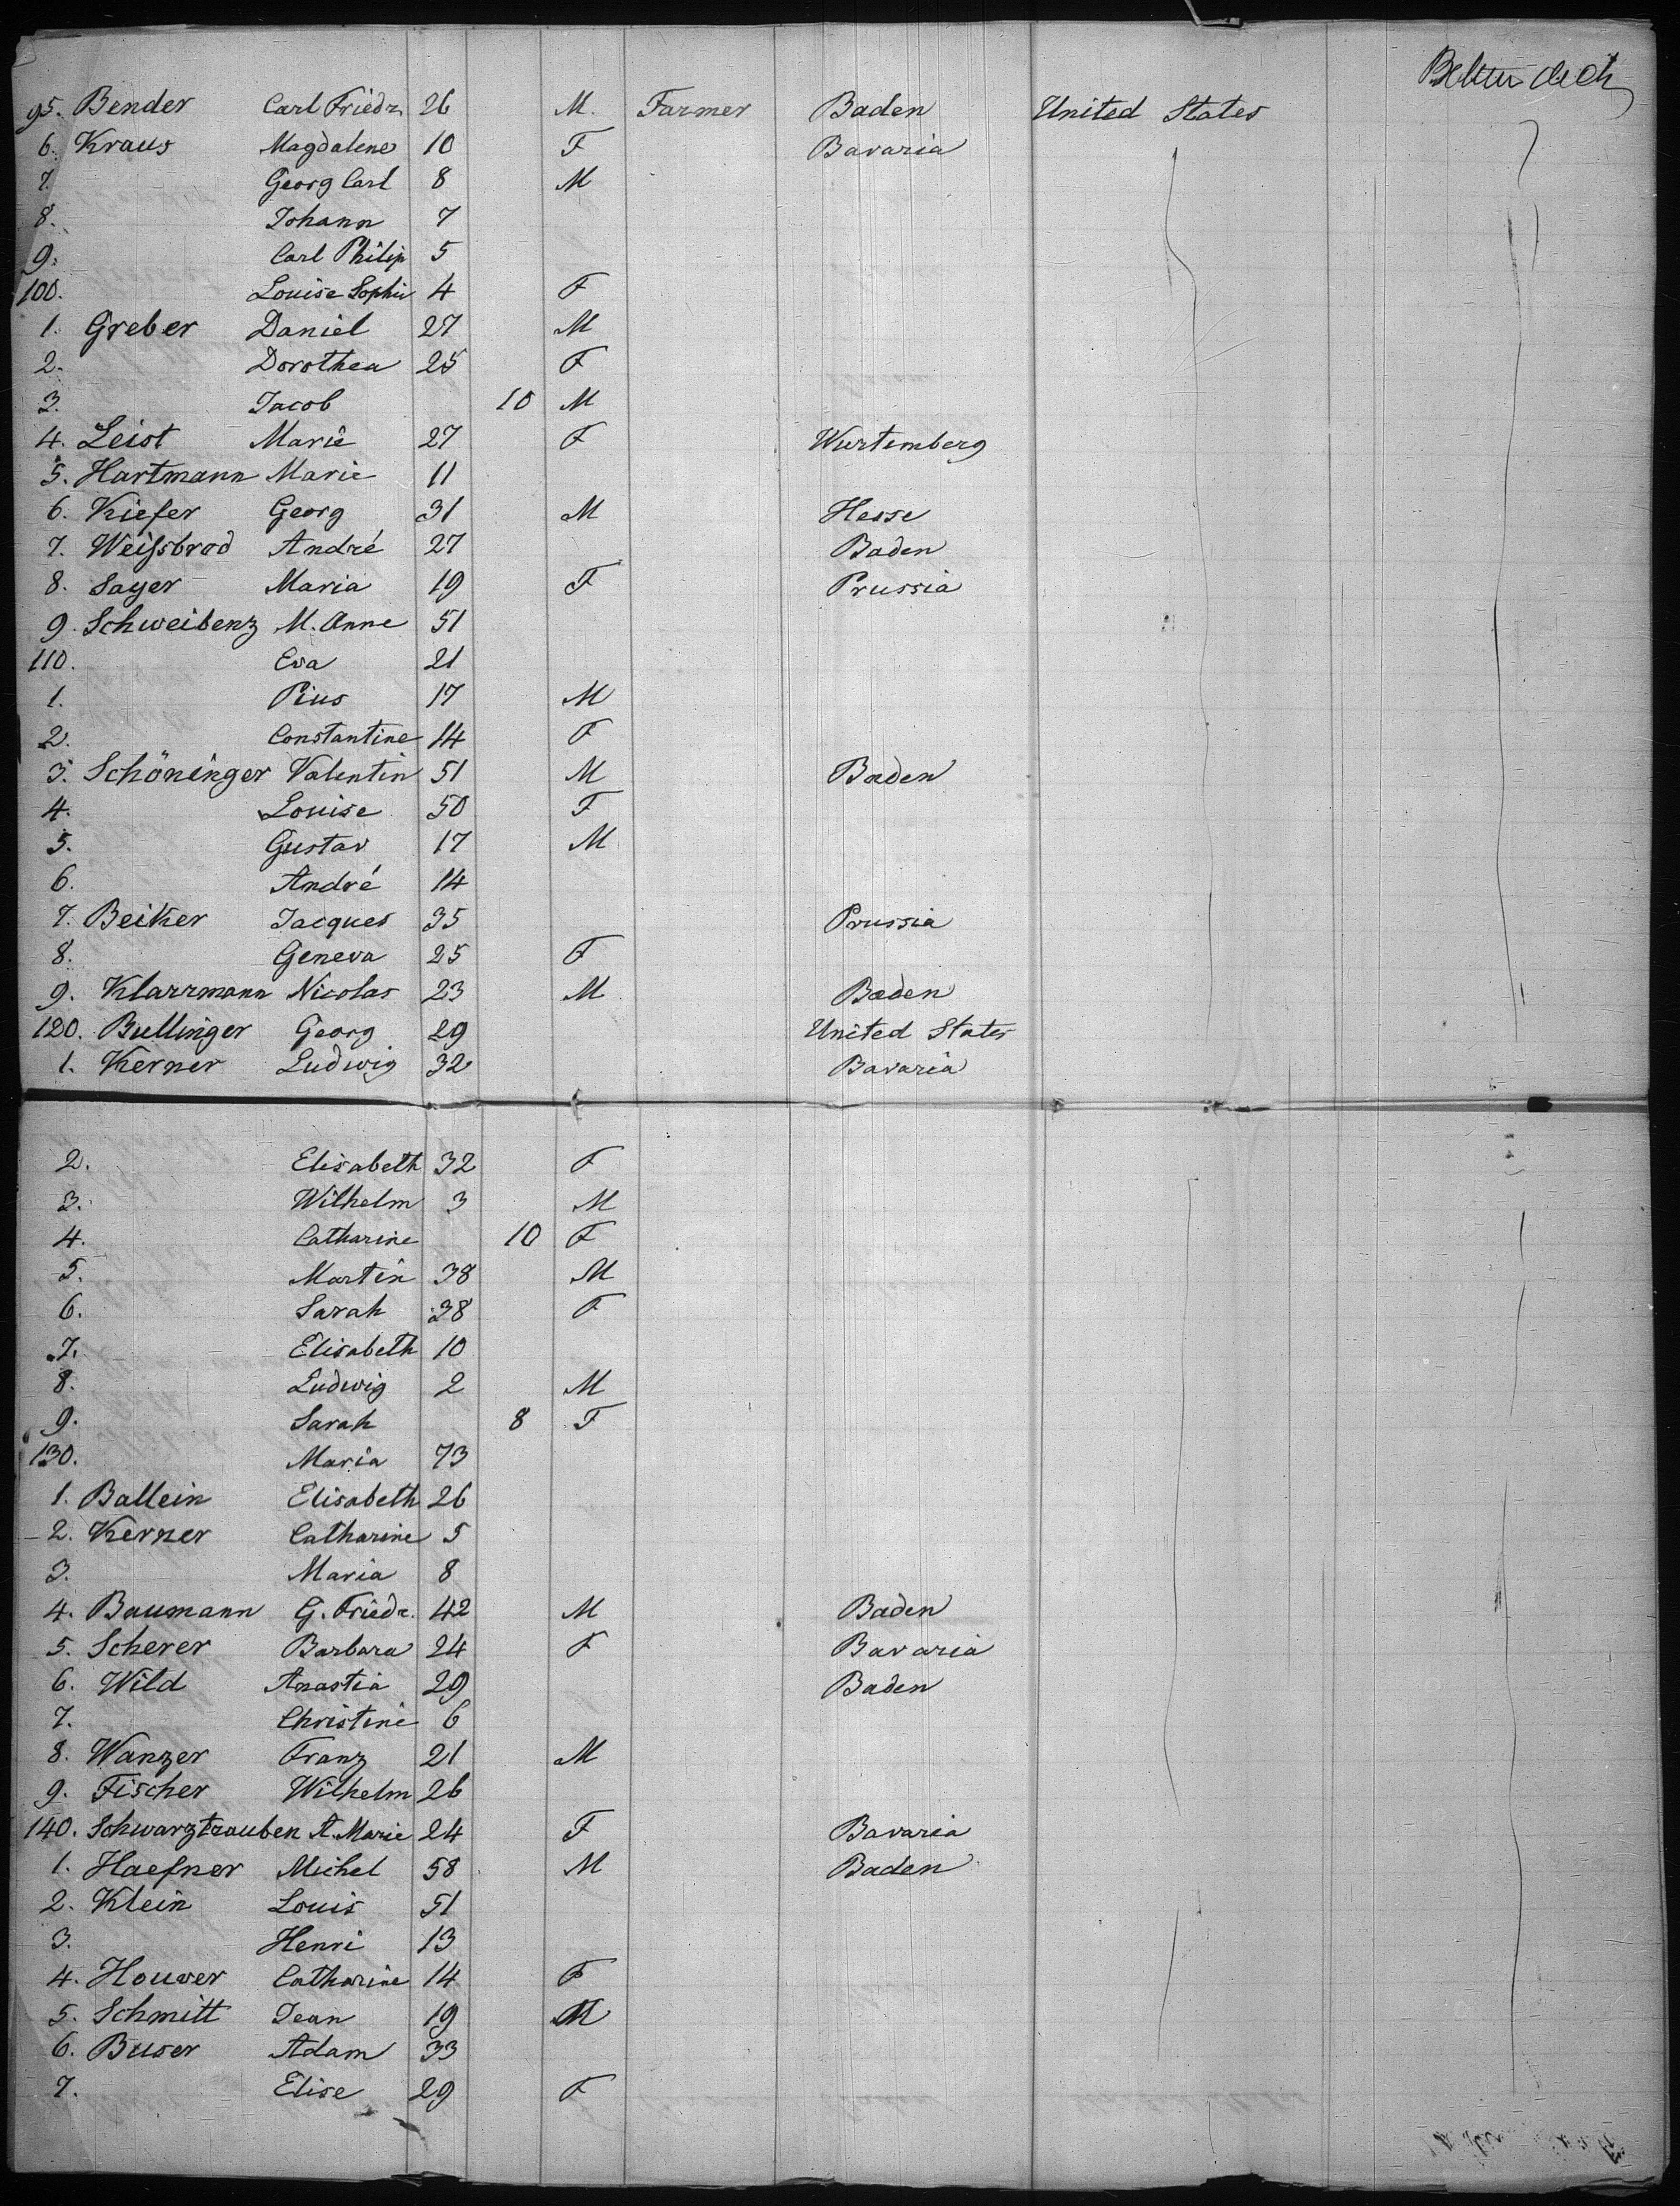 Between deck
95. Bender Carl Friedr. 26 M. Farmer Baden United States
6. Kraus Magdalene 10 F Bavaria
7. Georg Carl 8 M
8. Johann 7
9. Carl Philip 5
100. Louise Sophie 4 F
1. Greber Daniel 27 M
2. Dorothea 25 F
3. Jacob 10 M
4. Leist Marie 27 F Wurtemberg
5. Hartmann Marie 11
6. Kiefer Georg 31 M Hesse
7. Weißbrod André 27 Baden
8. Sayer Maria 19 F Prussia
9. Schweibenz M. Anne 51
110. Eva 21
1. Pius 17 M
2. Constantine 14 F
3. Schöninger Valentin 51 M Baden
4. Louise 50 F
5. Gustav 17 M
6. André 14
7. Beiker Jacques 35 Prussia
8. Geneva 25 F
9. Klarrmann Nicolas 23 M Baden
120. Bullinger Georg 29 United States
1. Kerner Ludwig 32 Bavaria
2. Elisabeth 32 F
3. Wilhelm 3 M
4. Catharine 10 F
5. Martin 38 M
6. Sarah 38 F
7. Elisabeth 10
8. Ludwig 2 M
9. Sarah 8 F
130. Maria 73
1. Ballein Elisabeth 26
2. Kerner Catharine 5
3. Maria 8
4. Baumann G. Friedr. 42 M Baden
5. Scherer Barbara 24 F Bavaria
6. Wild Anastia 29 Baden
7. Christine 6
8. Wanzer Franz 21 M
9. Fischer Wilhelm 26
140. Schwarztrauben A. Marie 24 F Bavaria
1. Haefner Michel 58 M Baden
2. Klein Louis 51
3. Henri 13
4. Houver Catharine 14 F
5. Schmitt Jean 19 M
6. Buser Adam 33
7. Elise 29 F